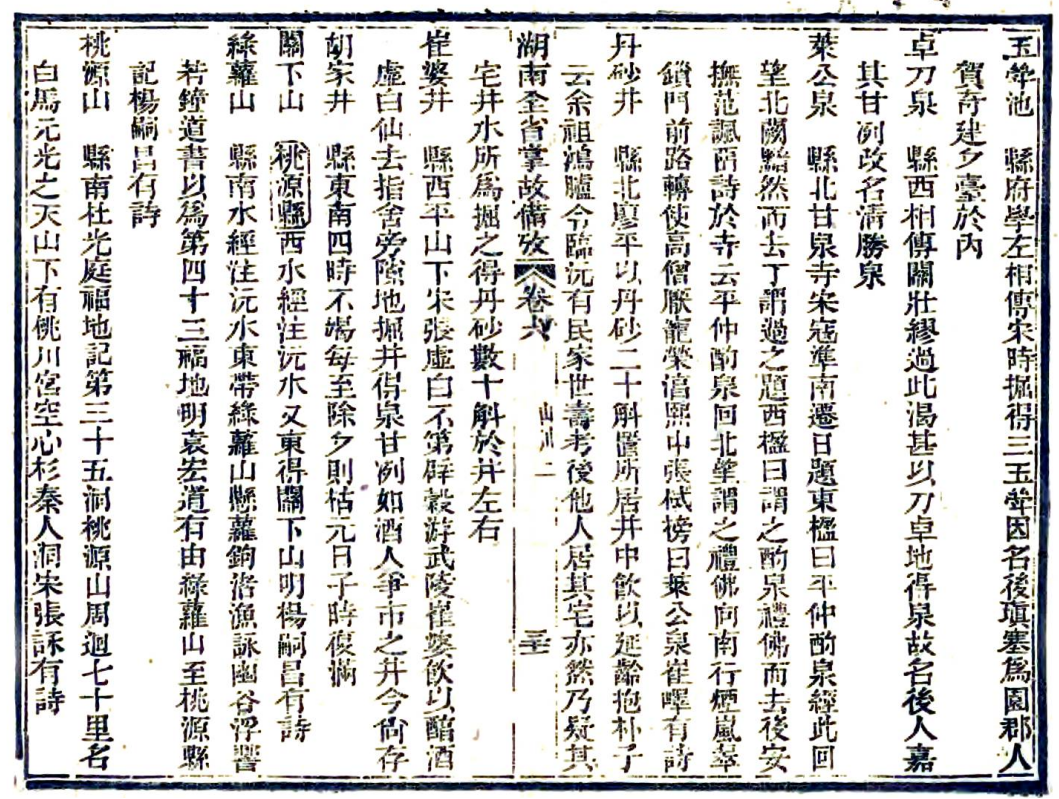 玉斝池　縣府學左相傳宋時掘得三玉斝因名後塡塞爲園郡人
賀奇建夕臺於內
卓刀泉　縣西相傳關壯繆過此渴甚以刀卓地得泉故名後人嘉
其甘列改名淸勝泉
萊公泉　縣北甘泉寺宋寇準南遷日題東楹曰平仲酌泉經此回
望北闕黯然而去丁謂過之題西楹曰謂之酌泉禮佛而去後安
撫范諷留詩於寺云平仲酌泉回北望謂之禮佛向南行煙嵐翠
鎖門前路轉使高僧厭寵榮淳熙中張栻榜曰萊公泉崔嶧有詩
丹砂井　縣北廖平以丹砂二十斛置所居井中飮以延齡抱朴子
云余祖鴻臚令臨沅有民家世壽考後他人居其宅亦然乃疑其
湖南全省掌故備攷　卷六　山川二　三十
宅井水所爲掘之得丹砂數十斛於井左右
崔婆井　縣西平山下宋張虛白不第辟穀游武陵崔婆飮以醇酒
虛白仙去指舍旁隙地掘井得泉甘冽如酒人爭市之井今尙存
胡家井　縣東南四時不竭每至除夕則枯元日子時復滿
關下山　桃源縣西水經注沅水又東得關下山明楊嗣昌有詩
綠蘿山　縣南水經注沅水東帶綠蘿山懸蘿鉤渚漁詠幽谷浮響
若鐘道書以爲第四十三福地明袁宏道有由綠蘿山至桃源縣
記楊嗣昌有詩
桃源山　縣南杜光庭福地記第三十五洞桃源山周迴七十里名
白馬元光之天山下有桃川宮空心杉秦人洞朱張詠有詩